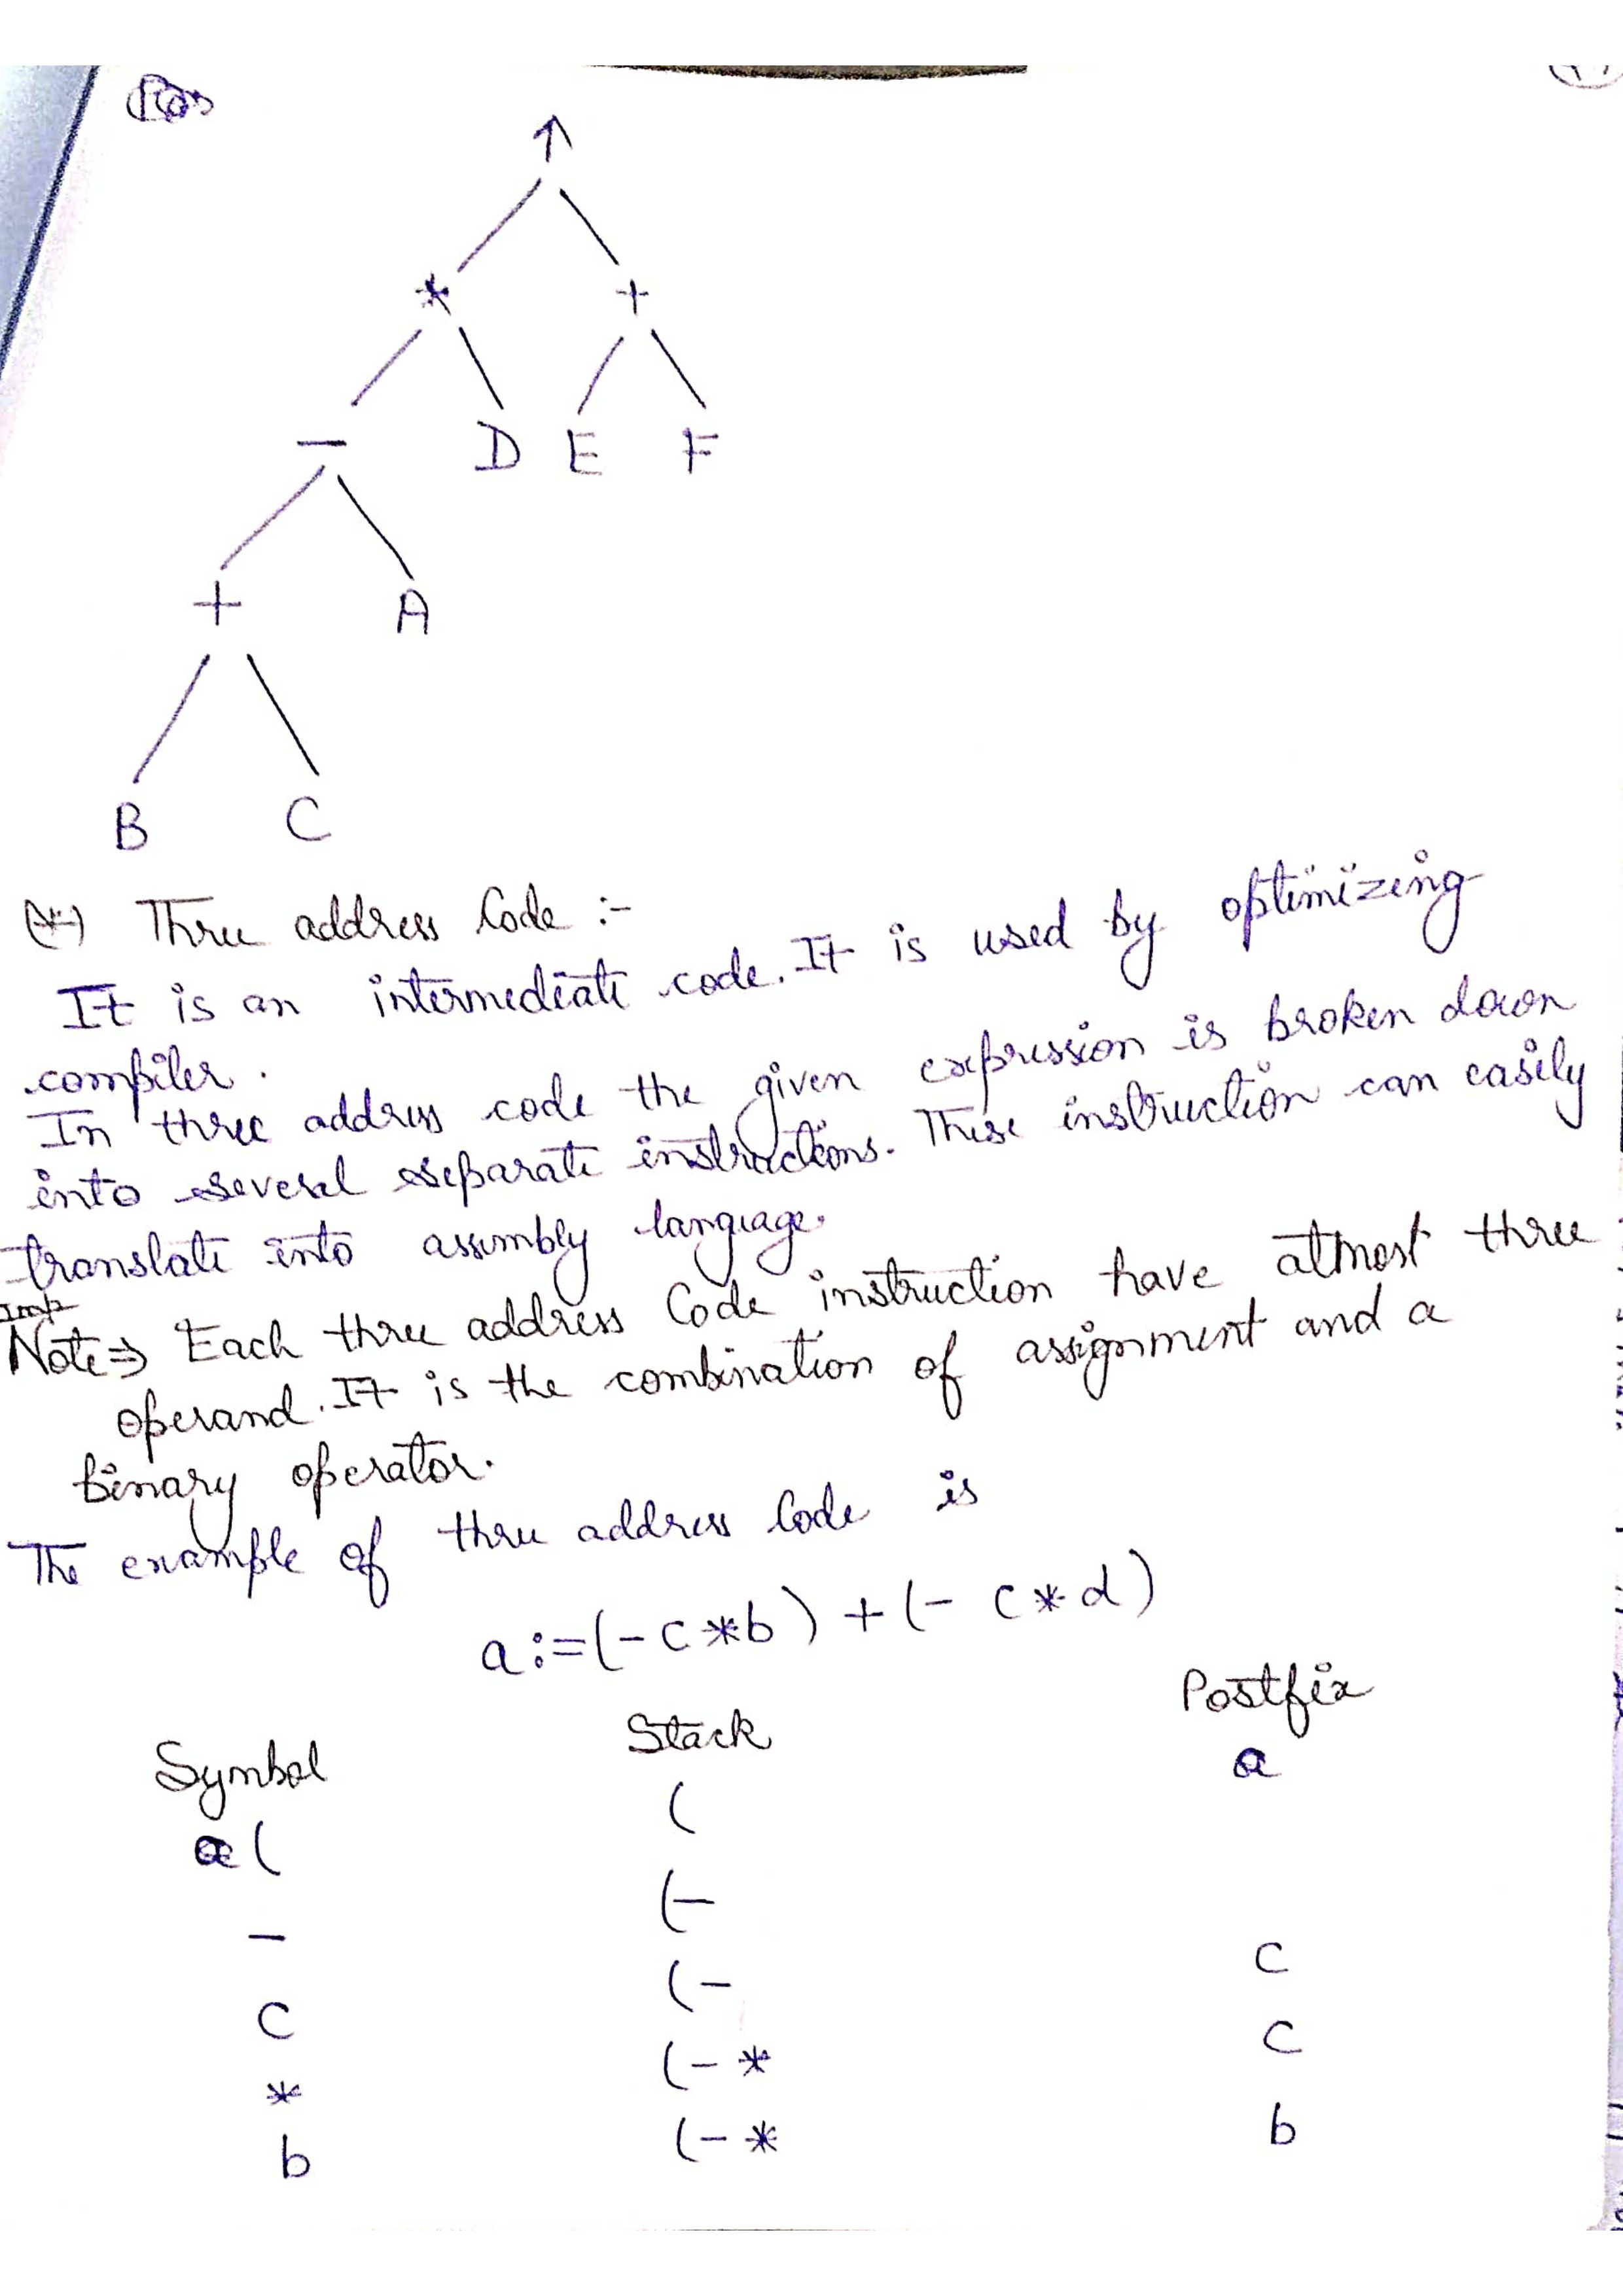 ↑
* +
− D E F
+ A
B C
(*) Three address Code :-
It is an intermediate code. It is used by optimizing
compiler.
In three address code the given expression is broken down
into several separate instructions. These instruction can easily
translate into assembly language.
Imp
Note⇒ Each three address Code instruction have atmost three
operand. It is the combination of assignment and a
binary operator.
The example of three address Code is
a:=(-c*b)+(- c*d)
Symbol Stack Postfix
a( ( a
− (−
c (− c
* (−* c
b (−* b